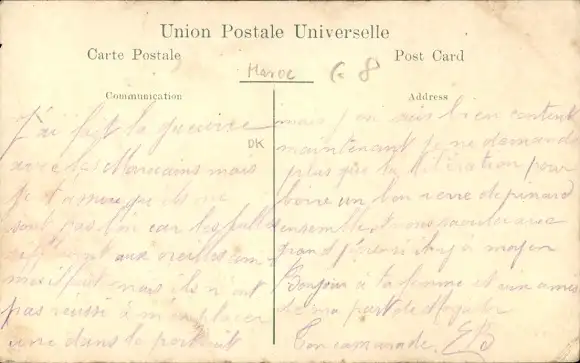 Union Postale Universelle
Carte Postale
Post Card
Maroc
68
Communication
Address
J'ai fait la guerre
avec les Marocains mais
DK
pas car les balles
sifflaient aux oreilles
mais ils n'ont
pas réussi à m'en placer
une dans le portrait
mais j'en suis bien content
maintenant je ne demande
plus que la libération pour
boire un bon verre de pinard
ensemble et nous
grand moyen
Bonjour à ta femme et
de ma part de Mogador
Ton camarade EB